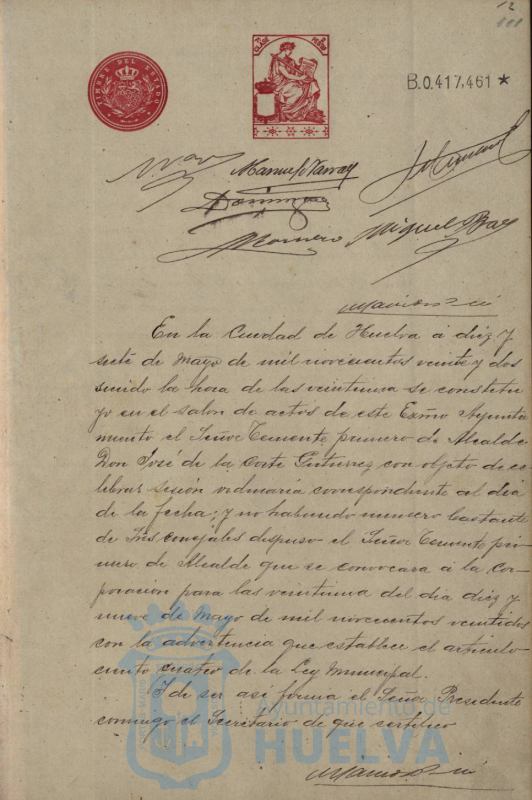 12
TIMBRE DEL ESTADO
B.0.417,461 *
Manuel
Dominguez
Romero Miguel
En la Ciudad de Huelva á diez y
siete de Mayo de mil novecientos veinte y dos
siendo la hora de las veintiuna se constitu
yo en el salon de actos de este Exmo Ayunta
miento el Señor Teniente primero de Alcalde
Don José de la Corte Gutierrez con objeto de ce
lebrar sesión ordinaria correspondiente al dia
de la fecha; y no habiendo numero bastante
de Sres concejales dispuso el Señor Teniente pri
mero de Alcalde que se convocara á la Cor
poracion para las veintiuna del dia diez y
nueve de Mayo de mil novecientos veintidos
con la advertencia que establece el articulo
ciento cuatro de la Ley Municipal.
Y de ser asi firma el Señor Presidente
conmigo el Secretario de que certifico
Ayuntamiento de
HUELVA